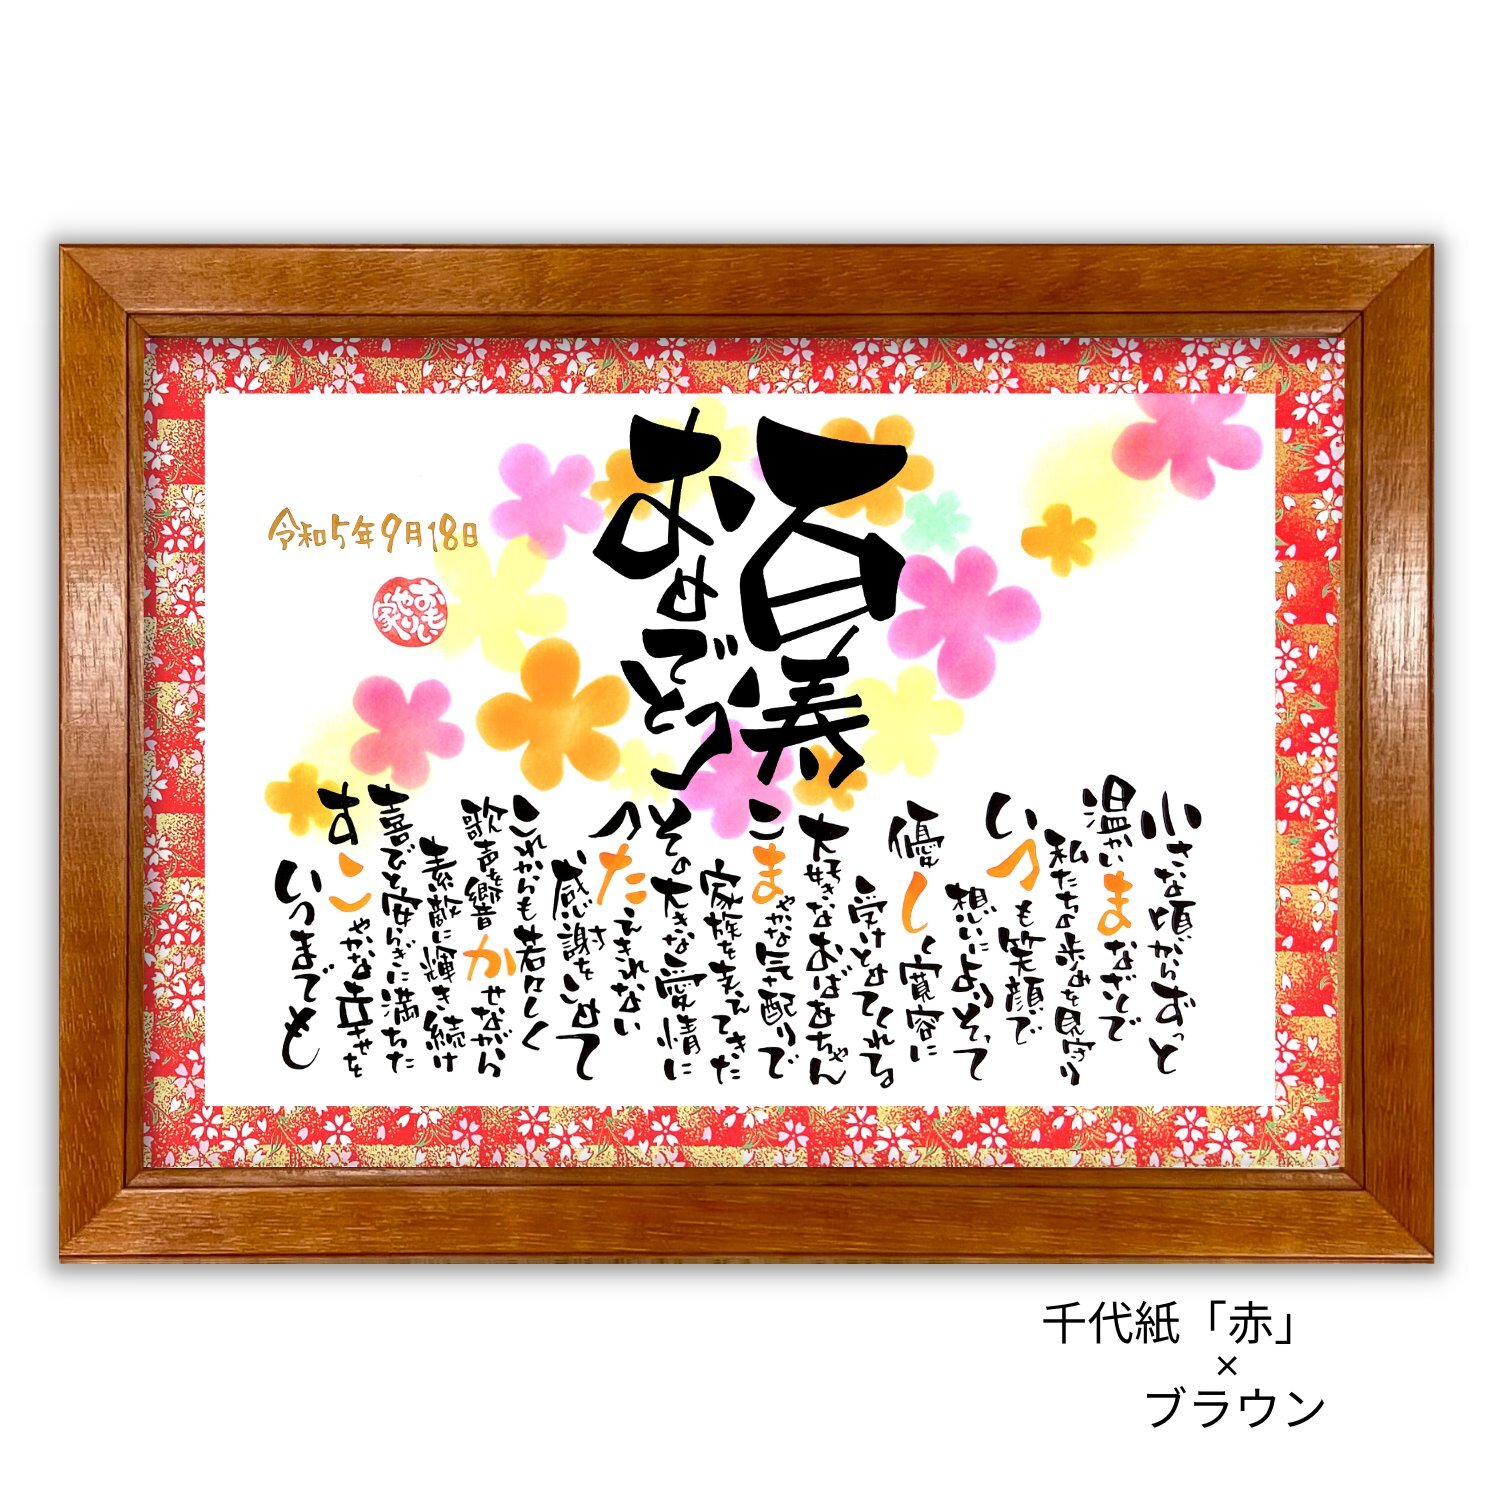 百寿
おめでとう
小さな頃からずっと
温かいまなざしで
私たちの歩みを見守り
いつも笑顔で
想いによりそって
優しく寛容に
受けとめてくれる
大好きなおばあちゃん
こまやかな気配りで
家族を支えてきた
その大きな愛情に
つたえきれない
感謝をこめて
これからも若々しく
歌声を響かせながら
素敵に輝き続け
喜びと安らぎに満ちた
すこやかな幸せを
いつまでも
令和5年9月18日
おもいやり家
千代紙「赤」
×
ブラウン